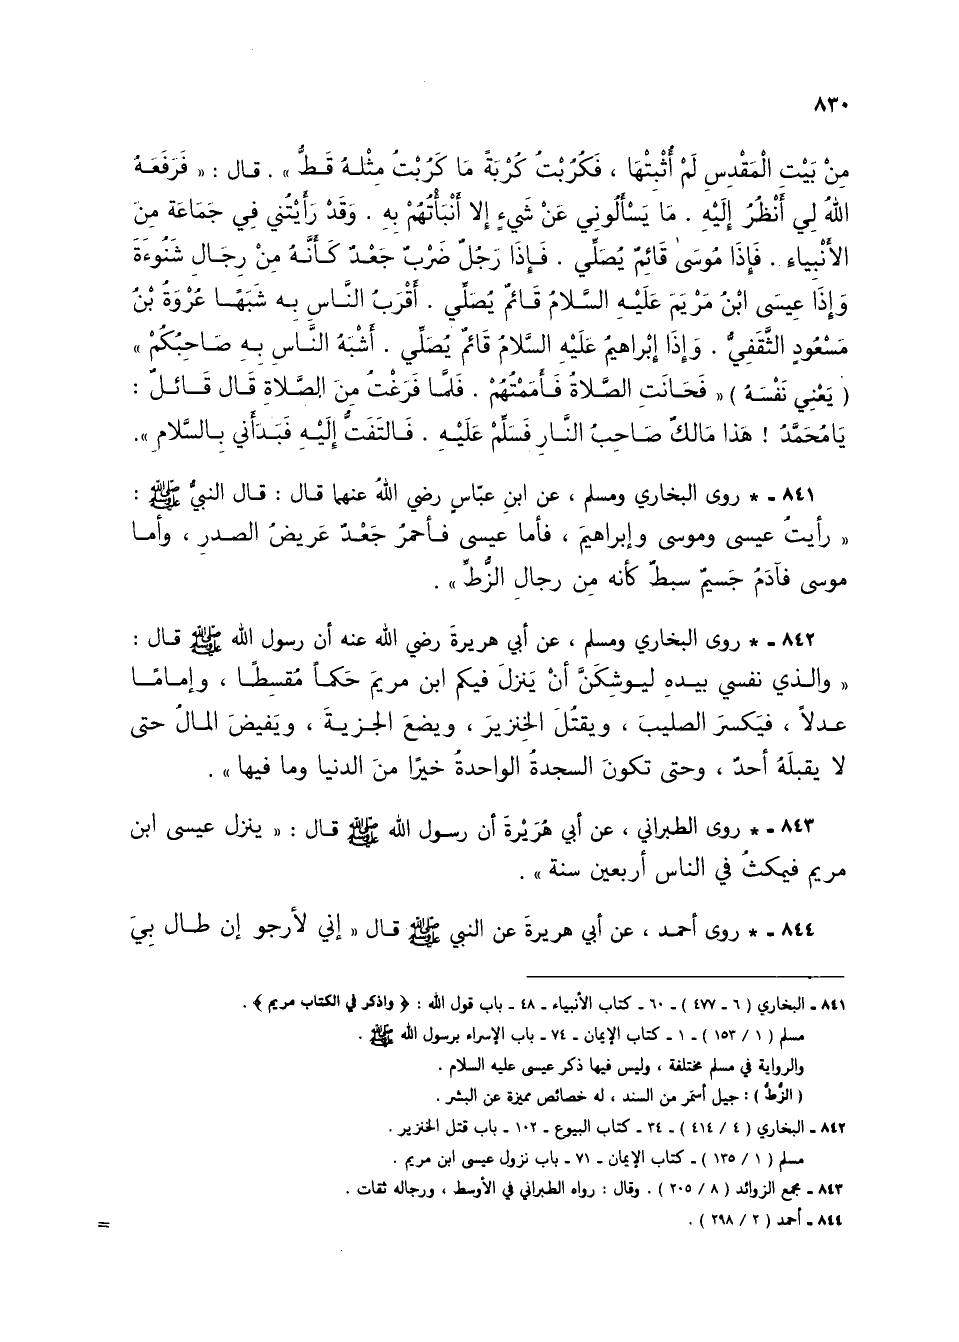 ٨٣٠
مِنْ بَيْتِ الْمَقْدِسِ لَمْ أُثْبِتْهَا ، فَكُرِبْتُ كُرْبَةً مَا كُرِبْتُ مِثْلَهُ قَطُّ » . قال : « فَرَفَعَهُ
اللهُ لِي أَنْظُرُ إِلَيْهِ . مَا يَسْأَلُونِي عَنْ شَيْءٍ إلا أَنْبَأْتُهُمْ بِهِ . وَقَدْ رَأَيْتُنِي فِي جَمَاعَةٍ مِنَ
الأَنْبِيَاءِ . فَإِذَا مُوسَى قَائِمٌ يُصَلِّي . فَإِذَا رَجُلٌ ضَرْبٌ جَعْدٌ كَأَنَّهُ مِنْ رِجَالِ شَنُوءَةَ
وَإِذَا عِيسَى ابْنُ مَرْيَمَ عَلَيْهِ السَّلامُ قَائِمٌ يُصَلِّي . أَقْرَبُ النَّاسِ بِهِ شَبَهًا عُرْوَةُ بْنُ
مَسْعُودٍ الثَّقَفِيُّ . وَإِذَا إِبْراهِيمُ عَلَيْهِ السَّلامُ قَائِمٌ يُصَلِّي . أَشْبَهُ النَّاسِ بِهِ صَاحِبُكُمْ »
( يَعْنِي نَفْسَهُ ) « فَحَانَتِ الصَّلاةُ فَأَمَمْتُهُمْ . فَلَمَّا فَرَغْتُ مِنَ الصَّلاةِ قَالَ قَائِلٌ :
يَامُحَمَّدُ ! هَذَا مَالِكٌ صَاحِبُ النَّارِ فَسَلِّمْ عَلَيْهِ . فَالتَفَتُّ إِلَيْهِ فَبَدَأَنِي بِالسَّلامِ ».
٨٤١ - * روى البخاري ومسلم ، عن ابن عبّاسٍ رضي اللهُ عنهما قال : قال النبيُّ ﷺ :
« رأيتُ عيسى وموسى وإبراهيمَ ، فأما عيسى فأحمرُ جَعْدٌ عَريضُ الصدرِ ، وأما
موسى فآدَمُ جَسيمٌ سبطٌ كأنه مِن رجال الزُّطِّ » .
٨٤٢ - * روى البخاري ومسلم ، عن أبي هريرةَ رضي الله عنه أن رسول الله ﷺ قال :
« والذي نفسي بيدهِ ليوشكَنَّ أنْ يَنزلَ فيكم ابن مريمَ حَكماً مُقسطًا ، وإمامًا
عدلاً ، فيَكسرَ الصليبَ ، ويقتُلَ الخنزيرَ ، ويضعَ الجزيةَ ، ويَفيضَ المالُ حتى
لا يقبلَهُ أحدٌ ، وحتى تكونَ السجدةُ الواحدةُ خيرًا منَ الدنيا وما فيها » .
٨٤٣ - * روى الطبراني ، عن أبي هُرَيْرَةَ أن رسول الله ﷺ قال : « ينزل عيسى ابن
مريم فيمكثُ في الناس أربعين سنة » .
٨٤٤ - * روى أحمد ، عن أبي هريرةَ عن النبي ﷺ قال « إني لأرجو إن طال بيَ
٨٤١ - البخاري ( ٦ - ٤٧٧ ) - ٦٠ - كتاب الأنبياء - ٤٨ - باب قول الله : ﴿ واذكر في الكتاب مريم ﴾ .
مسلم ( ١ / ١٥٣ ) - ١ - كتاب الإيمان - ٧٤ - باب الإسراء برسول الله ﷺ .
والرواية في مسلم مختلفة ، وليس فيها ذكر عيسى عليه السلام .
( الزُّطُّ ) : جيل أسمَر من السند ، له خصائص مميزة عن البشر .
٨٤٢ - البخاري ( ٤ / ٤١٤ ) - ٣٤ - كتاب البيوع - ١٠٢ - باب قتل الخنزير .
مسلم ( ١ / ١٣٥ ) - كتاب الإيمان - ٧١ - باب نزول عيسى ابن مريم .
٨٤٣ - مجمع الزوائد ( ٨ / ٢٠٥ ) . وقال : رواه الطبراني في الأوسط ، ورجاله ثقات .
٨٤٤ - أحمد ( ٢ / ٢٩٨ ) .
=